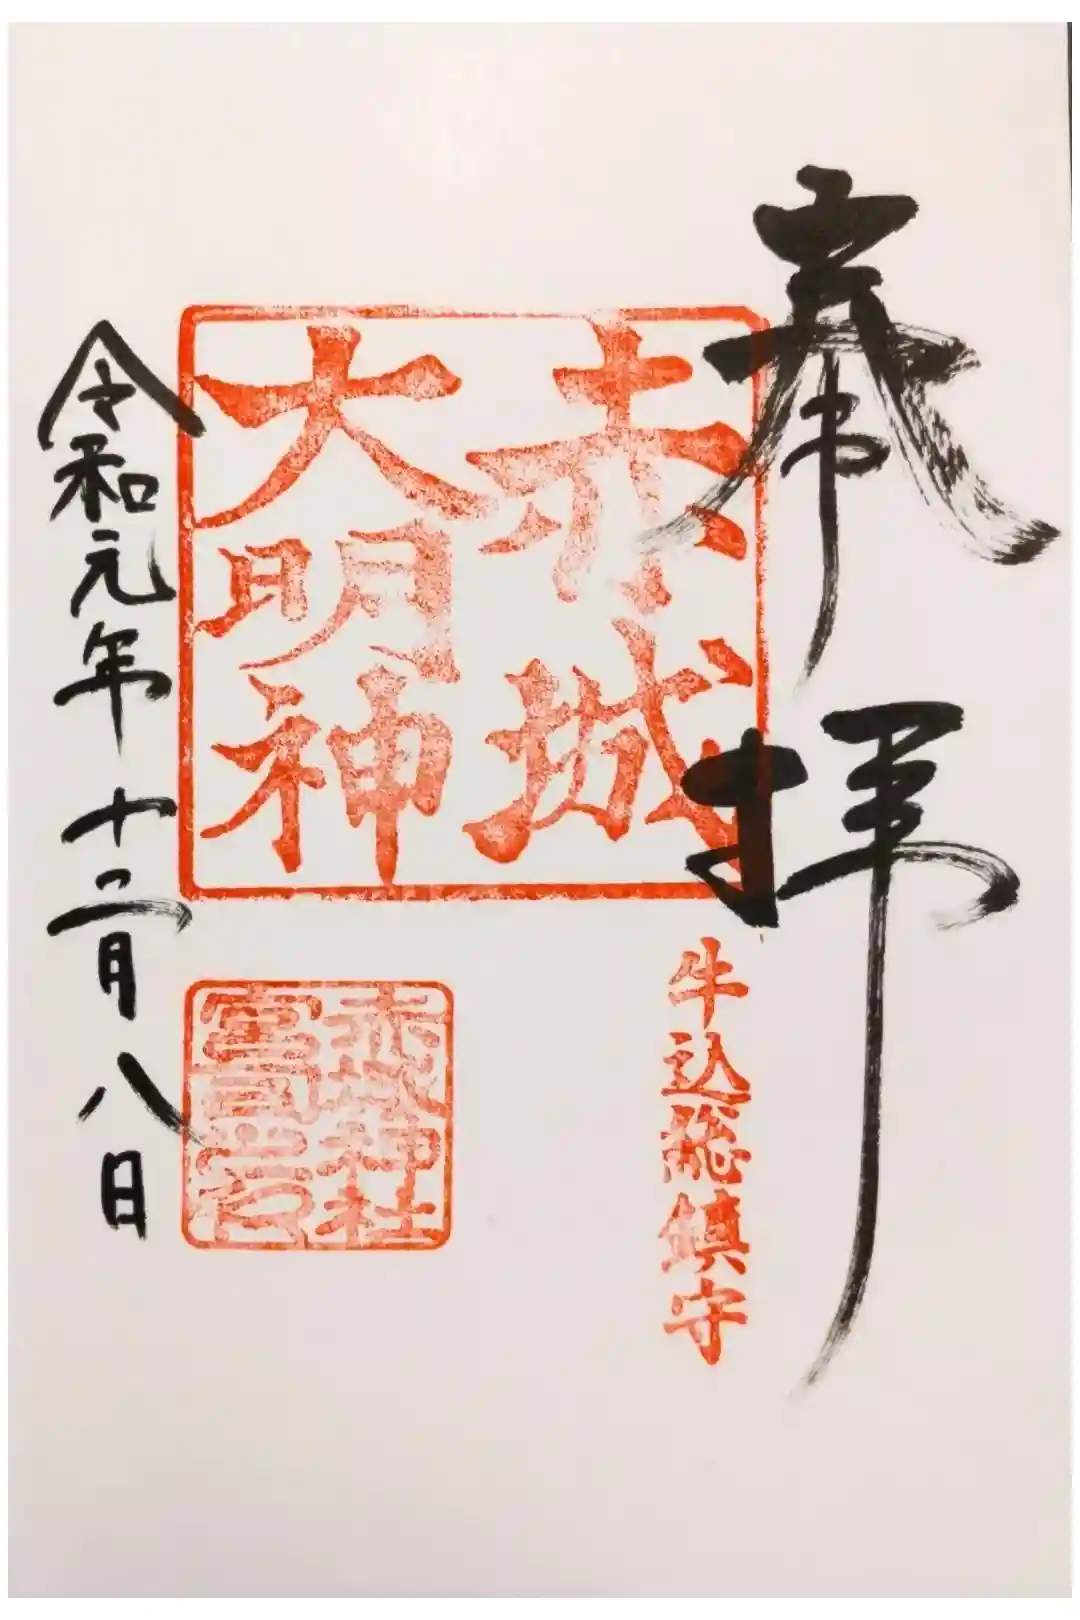 奉拝
赤城
大明神
牛込総鎮守
赤城神社
令和元年十二月八日